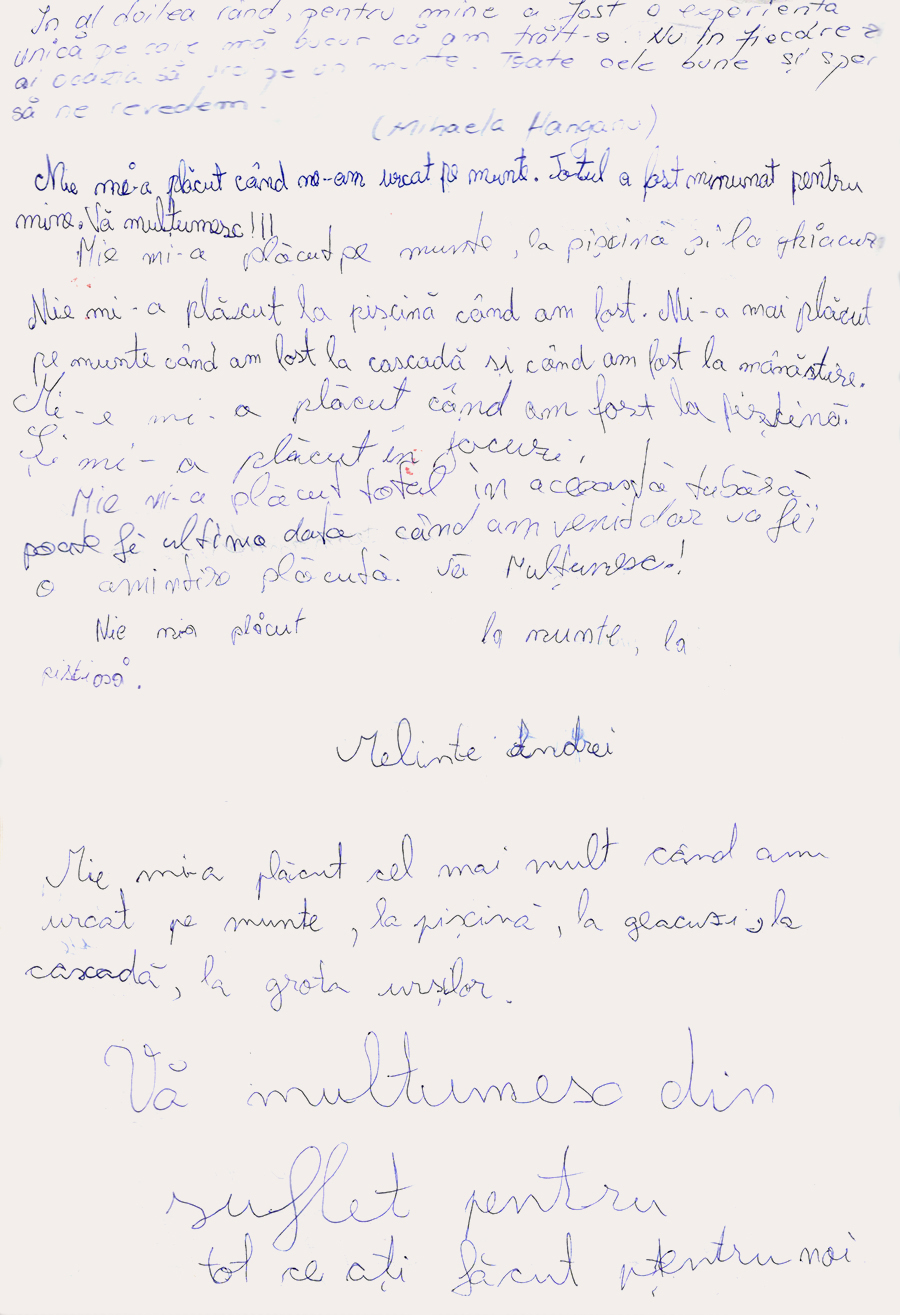 În al doilea rând, pentru mine a fost o experiența
unică pe care mă bucur că am trăit-o. Nu în fiecare z
ai ocazia să pe un munte. Toate cele bune și sper
să ne revedem.
(Mihaela Hanganu)
Mie mi-a plăcut când ne-am urcat pe munte. Totul a fost minunat pentru
mine. Vă mulțumesc!!!
Mie mi-a plăcut pe munte, la pișcină și la ghiacuzi
Mie mi-a plăscut la pișcină când am fost. Mi-a mai plăcut
pe munte când am fost la cascadă și când am fost la mănăstire.
Mi-e mi-a plăcut când am fost la pișcină.
Și mi-a plăcut în jocuri.
Mie mi-a plăcut total în această tabără
poate fi ultima dată când am venit dar va fii
o amintire plăcută. Vă Mulțumesc.!
Mie mia plăcut la munte, la

Melinte Andrei
Mie, mi-a plăcut cel mai mult când am
urcat pe munte, la pișcină, la geacuzi, la
cascadă, la grota urșilor.
Vă multumesc din
suflet pentru
tot ce ați făcut pentru noi